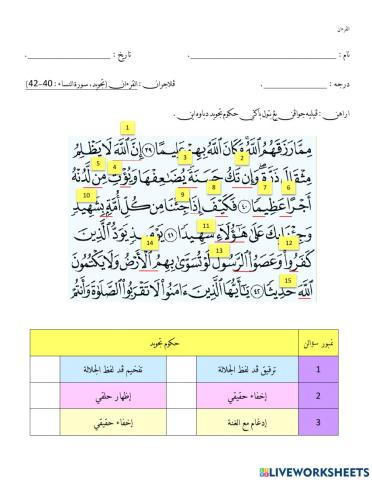 القرءان
نام : ____________________.
تاريخ : ____________________.
درجه : _______________.
ڤلاجران : القرءان (تجويد، سورة النساء : 40-42)
اراهن : ڤيليه جواڤن يڠ بتول باݢي حكوم تجويد دباوه اين.
1
مِمَّا رَزَقَهُمُ ٱللَّهُ وَكَانَ ٱللَّهُ بِهِمْ عَلِيمًا ٣٩ إِنَّ ٱللَّهَ لَا يَظْلِمُ
5 4 3 2
مِثْقَالَ ذَرَّةٍ وَإِن تَكُ حَسَنَةً يُضَٰعِفْهَا وَيُؤْتِ مِن لَّدُنْهُ
10 9 8 7 6
أَجْرًا عَظِيمًا ٤٠ فَكَيْفَ إِذَا جِئْنَا مِن كُلِّ أُمَّةٍ بِشَهِيدٍ
11
وَجِئْنَا بِكَ عَلَىٰ هَٰٓؤُلَآءِ شَهِيدًا ٤١ يَوْمَئِذٍ يَوَدُّ ٱلَّذِينَ
14 13 12
كَفَرُوا۟ وَعَصَوُا۟ ٱلرَّسُولَ لَوْ تُسَوَّىٰ بِهِمُ ٱلْأَرْضُ وَلَا يَكْتُمُونَ
15
ٱللَّهَ حَدِيثًا ٤٢ يَٰٓأَيُّهَا ٱلَّذِينَ ءَامَنُوا۟ لَا تَقْرَبُوا۟ ٱلصَّلَوٰةَ وَأَنتُمْ
نمبور سؤالن حكوم تجويد
1 ترقيق ڤد لفظ الجلالة تفخيم ڤد لفظ الجلالة
2 إخفاء حقيقي إظهار حلقي
3 إدغام مع الغنة إخفاء حقيقي
LIVEWORKSHEETS